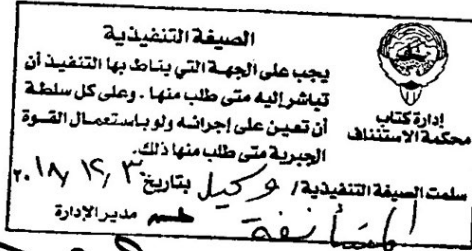 الصيغة التنفيذية
يجب على الجهة التي يناط بها التنفيذ أن
تباشر إليه متى طلب منها . وعلى كل سلطة
أن تعين على إجرائه ولو باستعمال القوة
الجبرية متى طلب منها ذلك.
إدارة كتاب
محكمة الاستئناف
سلمت الصيغة التنفيذية / وكيل بتاريخ ٣/١٢/٢٠١٨
المستأنفة
مدير الإدارة